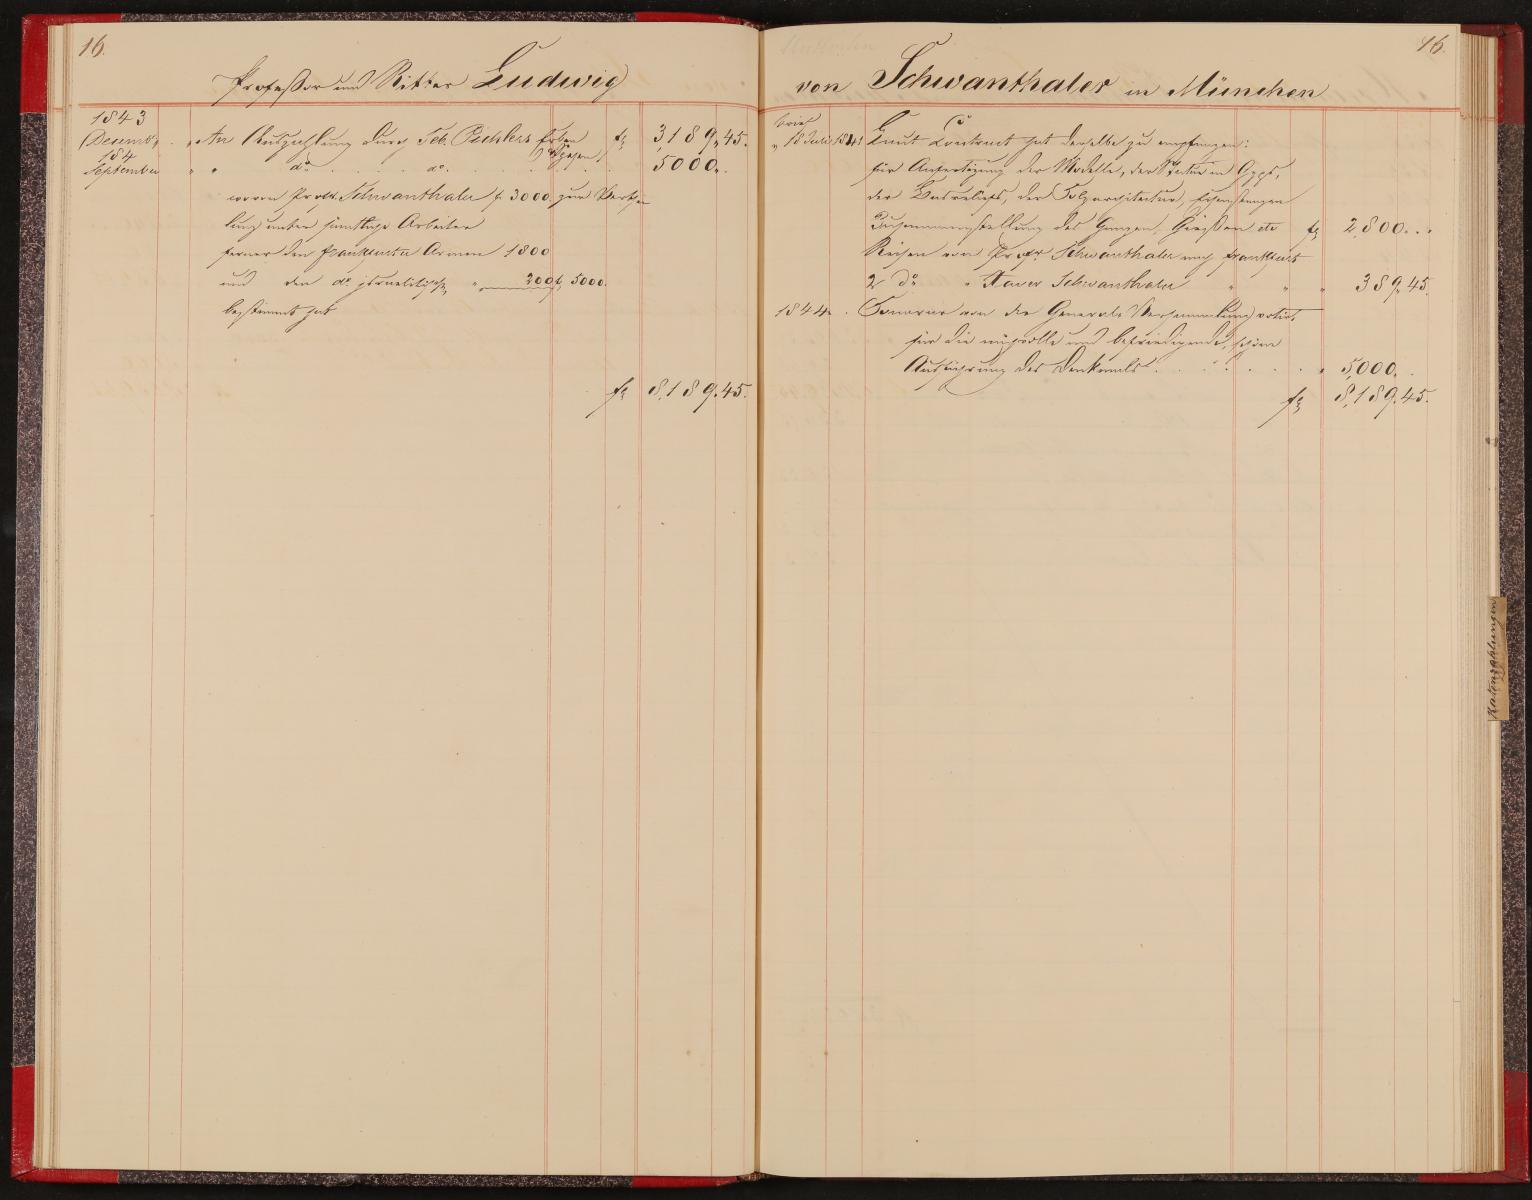 16.
Professor und Ritter Ludwig
1843
Decemb. An Auszahlung durch Seb. Pichlers Erben f 3189,45.
184
September " " do do. 5000,.
wovon Profr. Schwanthaler f. 3000 zur Verthei
lung unter sämtliche Arbeiter
ferner den Frankfurter Armen 1800
und den do. israelitischen " 200 f, 5000.
bestimmt hat
f 8,189.45.
16.
von Schwanthaler in München
brief
18 Juli 1841 Laut Contract hat derselbe zu empfangen:
für Anfertigung der Modelle, der Statue in Gyps,
der Basreliefs, der Holzarchitectur, Eisenstangen
Zusammenstellung des Ganzen, Giessen etc f 2,800...
Reisen von Profr. Schwanthaler nach Frankfurt
2 do " Xaver Schwanthaler " " " 389,45.
1844. Honorar von der General Versammlung votirt,
für die mühvolle und befriedigende, schöne
Ausführung des Denkmals " 5,000,.
f 8,189.45.
Ratenzahlungen